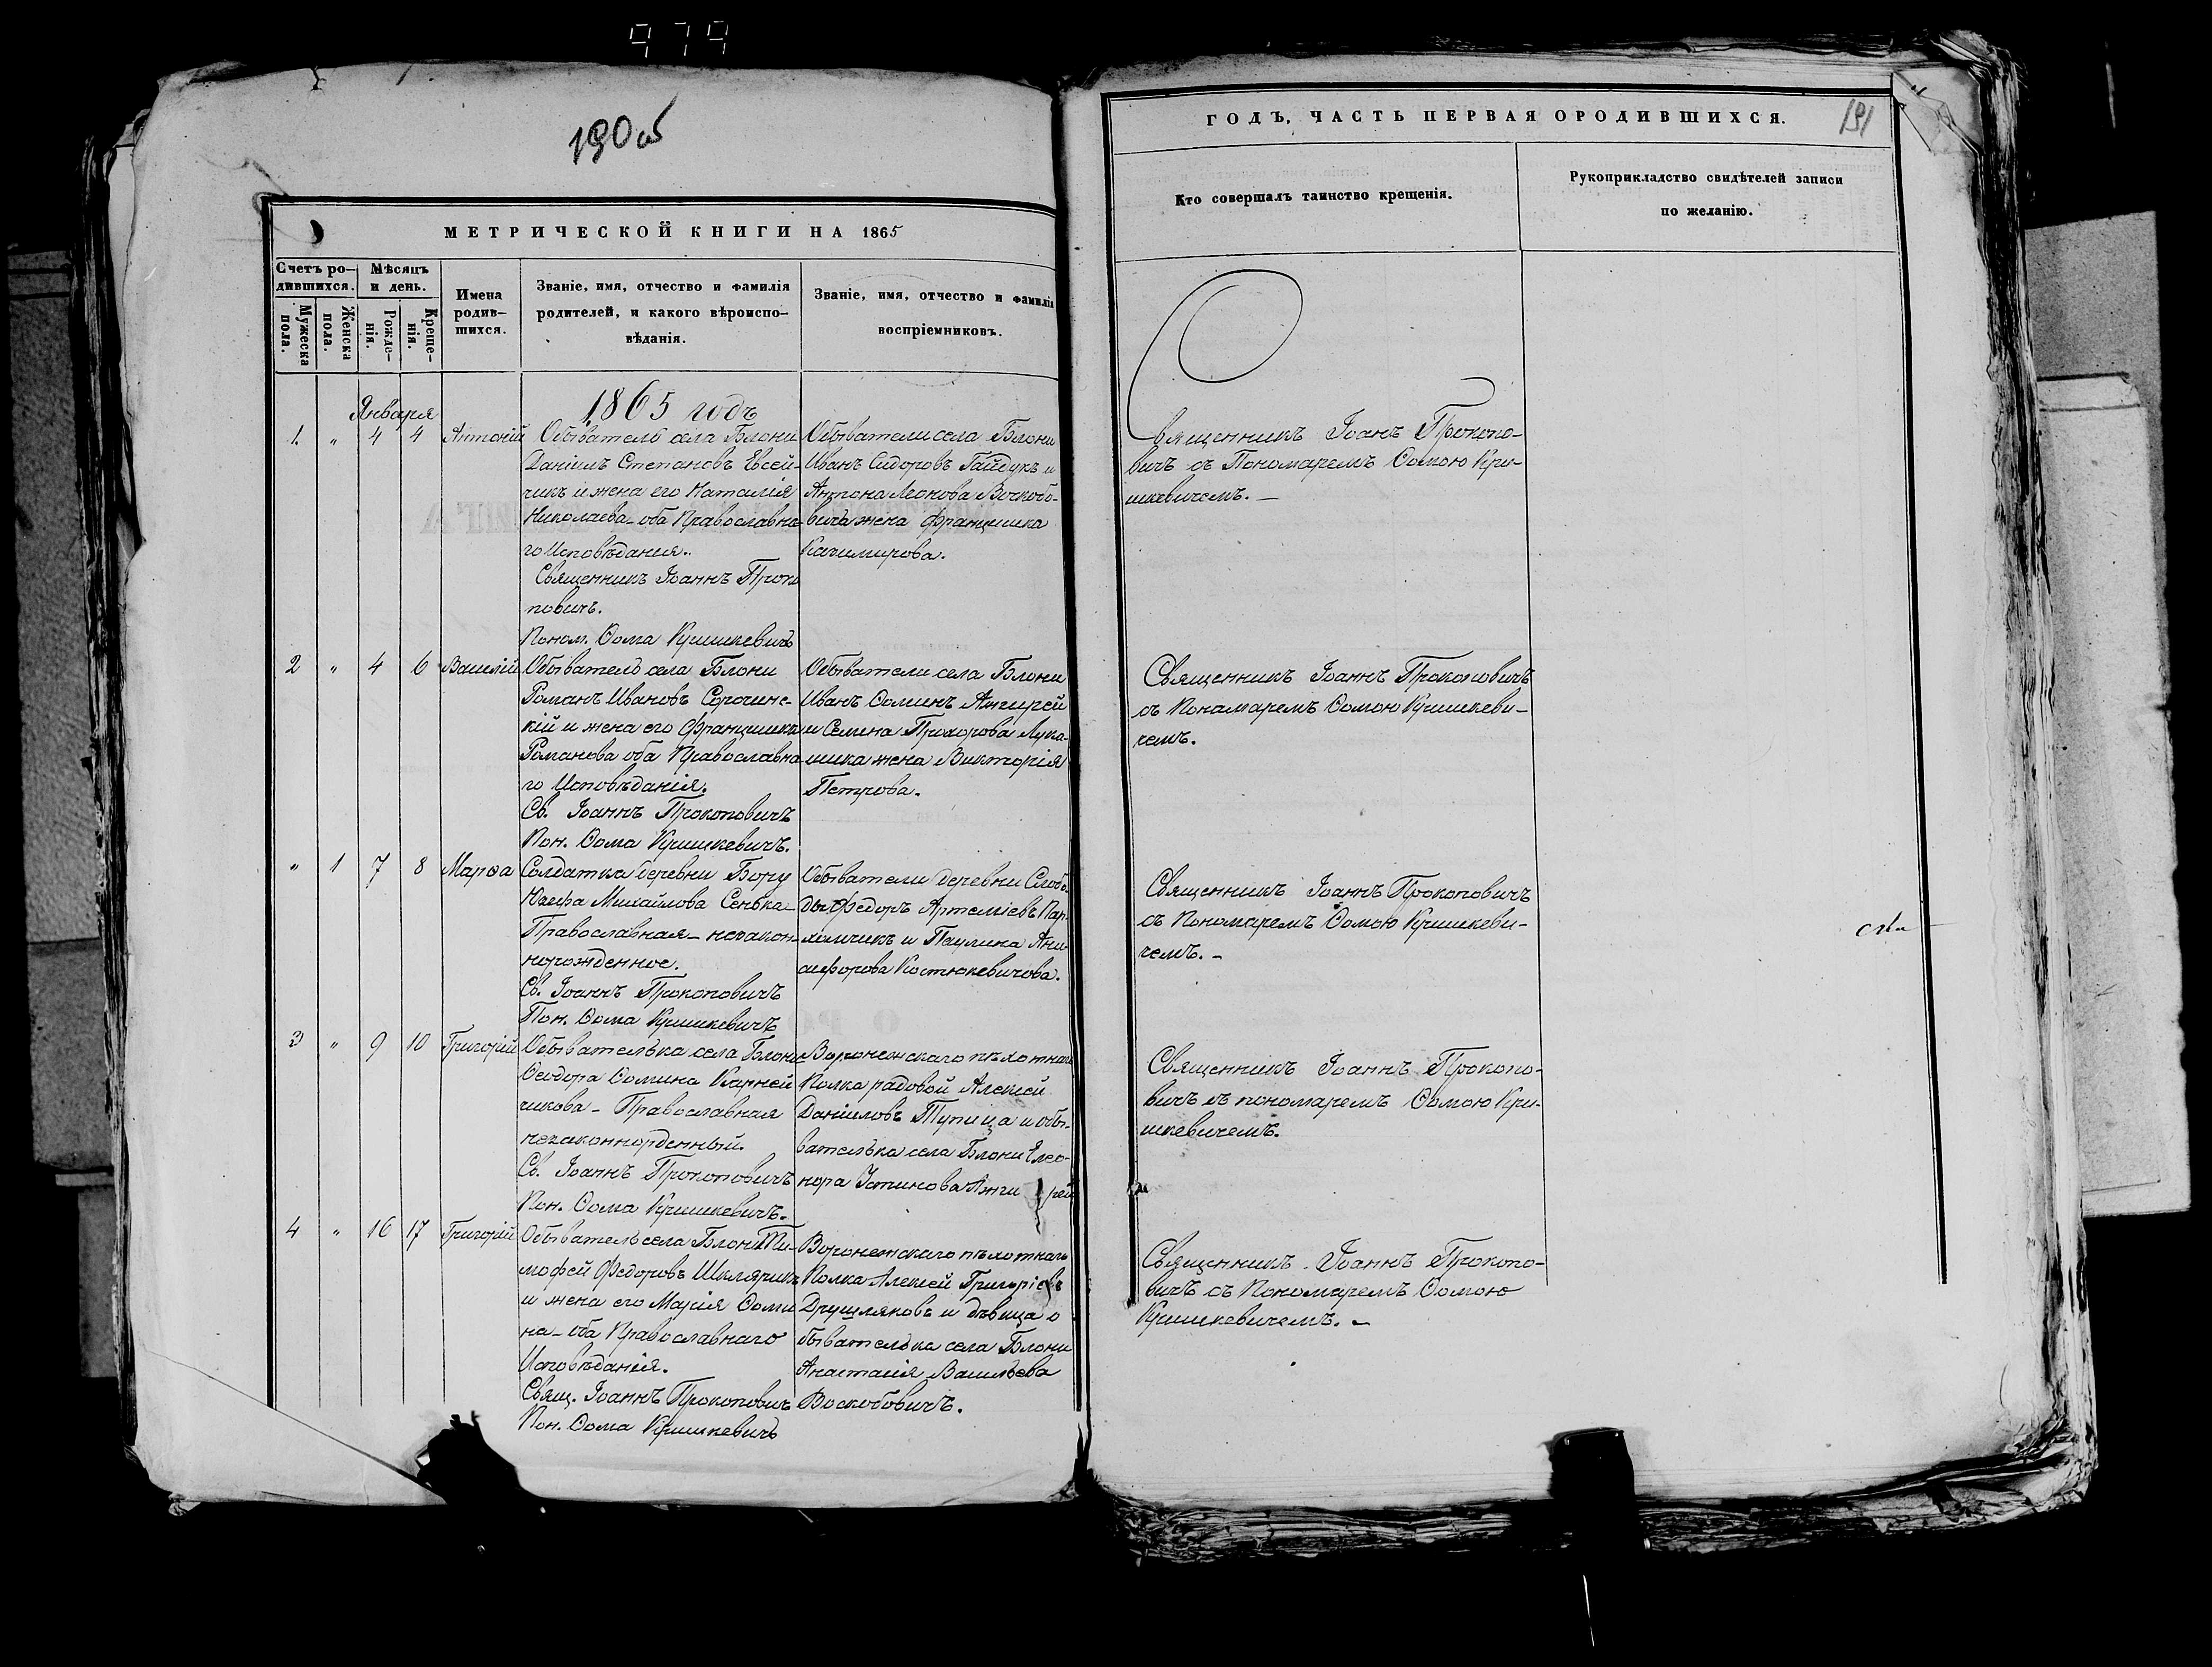 979
190об
МЕТРИЧЕСКОЙ КНИГИ НА 1865
Счетъ ро-
дившихся.
Мужеска
пола.
Женска
пола.
Мѣсяцъ
и день.
Рожде-
нія.
Креще-
нія.
Имена
родив-
шихся.
Званіе, имя, отчество и фамилія
родителей, и какого вѣроиспо-
вѣданія.
Званіе, имя, отчество и фамилія
воспріемниковъ.
Января
1865 годъ
1. " 4 4 Антоній
Обыватель села Блони
Даніилъ Степановъ Евсей-
чикъ и жена его Наталія
Николаева оба Православна-
го Исповѣданія.
Священникъ Іоаннъ Проко
повичъ.
Поном. Ѳома Кришкевичъ
Обыватели села Блони
Иванъ Сидоровъ Гайдукъ и
Антона Леонова
жена Францишка
Казимирова.
2 " 4 6 Василій
Обыватель села Блони
Романъ Ивановъ Сорочинс-
кій и жена его Францишка
Романова оба Православна
го Исповѣданія.
Св. Іоаннъ Прокоповичъ
Пон. Ѳома Кришкевичъ.
Обыватели села Блони
Иванъ Ѳоминъ Анчирей
и Семена Прохорова Лука-
шика жена Викторія
Петрова.
" 1 7 8 Марѳа
Солдатка деревни Бору
Юзефа Михайлова Сенька-
Православная - незакон-
норожденное.
Св. Іоаннъ Прокоповичъ
Пон. Ѳома Кришкевичъ
Обыватели деревни Слобо-
ды Федоръ Артеміевъ Пар-
химчикъ и Паулина Ани-
сифорова Костюкевичова.
3 " 9 10 Григорій
Обывателька села Блони
Ѳеодора Ѳомина Карней
чикова - Православная
незаконнорденный.
Св. Іоаннъ Прокоповичъ
Пон. Ѳома Кришкевичъ.
Воронежскаго пѣхотнаго
Полка радовой Алексей
Даніиловъ Тупица и обы-
вателька села Блони Елео-
нора Устинова
4 " 16 17 Григорій
Обыватель села Блони Ти-
мофей Федоровъ Шклярикъ
и жена его Марія Ѳоми
на - оба Православнаго
Исповѣданія.
Свящ. Іоаннъ Прокоповичъ
Пон. Ѳома Кришкевичъ
Воронежскаго пѣхотнаго
Полка Алексей Григоріевъ
Друшляковъ и дѣвица о
бывателька села Блони
Анастасія Васильева
Воскобовичъ.
ГОДЪ, ЧАСТЬ ПЕРВАЯ ОРОДИВШИХСЯ.
191
Кто совершалъ таинство крещенія.
Рукоприкладство свидѣтелей записи
по желанію.
Священникъ Іоанъ Прокопо-
вичъ съ Пономаремъ Ѳомою Кри-
шкевичемъ. —
Священникъ Іоаннъ Прокоповичъ
съ Понамаремъ Ѳомою Кришкеви-
чемъ.
Священникъ Іоаннъ Прокоповичъ
съ Пономаремъ Ѳомою Кришкеви-
чемъ. -
Священникъ Іоаннъ Прокопо-
вичъ съ пономаремъ Ѳомою Кри-
шкевичемъ.
Священникъ Іоаннъ Прокопо-
вичъ съ Пономаремъ Ѳомою
Кришкевичемъ. -